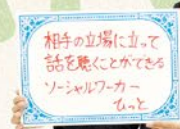 相手の立場に立って
話を聴くことができる
ソーシャルワーカー
ひっと